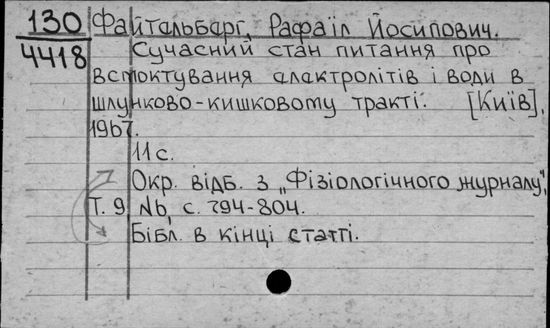 130 Файтельберг, Рафаїл Йосипович.
4418 Сучасний стан питання про
всмоктування електролітів і води в
шлунково-кишковому тракті. [Київ],
1967.
11 с.
Окр. відб. з „Фізіологічного журналу",
Т. 9, № 6, с. 794-804.
Бібл. в кінці статті.